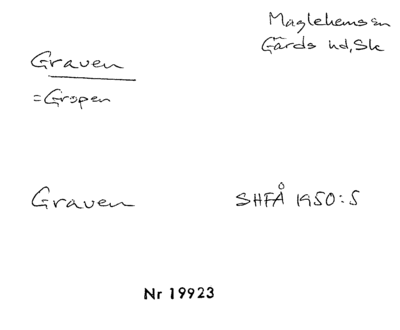 Maglehems sn
Gärds hd, Sk
Graven
=Gropen
Graven
SHFÅ 1950:5
Nr 19923